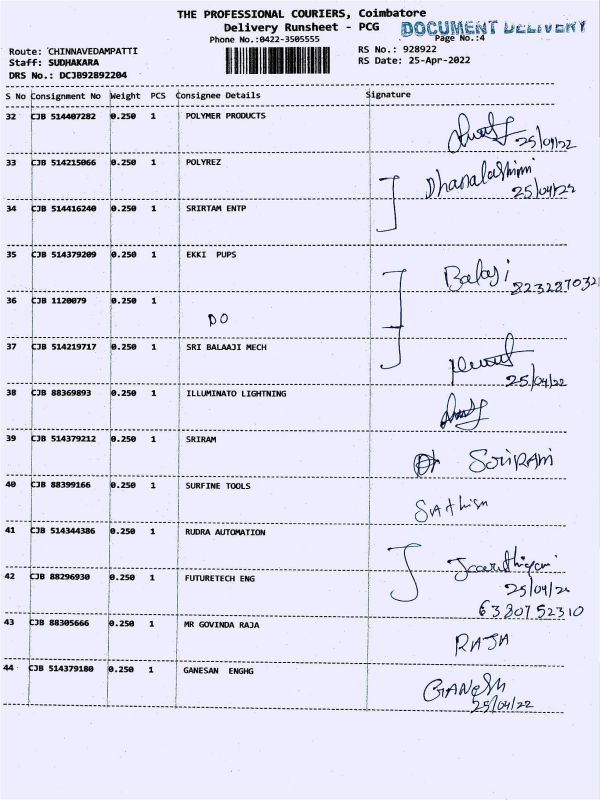 THE PROFESSIONAL COURIERS, Coimbatore
Delivery Runsheet - PCG
DOCUMENT DELIVERY
Phone No.:0422-3505555
Page No.:4
Route: CHINNAVEDAMPATTI
RS No.: 928922
Staff: SUDHAKARA
RS Date: 25-Apr-2022
DRS No.: DCJB92892204
S No Consignment No Weight PCS Consignee Details Signature
32 CJB 514407282 0.250 1 POLYMER PRODUCTS
25/04/22
33 CJB 514215066 0.250 1 POLYREZ
Dhanalashimi
25/04/22
34 CJB 514416240 0.250 1 SRIRTAM ENTP
35 CJB 514379209 0.250 1 EKKI PUPS
Balaji
8232870321
36 CJB 1120079 0.250 1
DO
37 CJB 514219717 0.250 1 SRI BALAAJI MECH
25/04/22
38 CJB 88369893 0.250 1 ILLUMINATO LIGHTNING
39 CJB 514379212 0.250 1 SRIRAM
SRIRAM
40 CJB 88399166 0.250 1 SURFINE TOOLS
41 CJB 514344386 0.250 1 RUDRA AUTOMATION
42 CJB 88296930 0.250 1 FUTURETECH ENG
25/04/22
6380752310
43 CJB 88305666 0.250 1 MR GOVINDA RAJA
RAJA
44 CJB 514379180 0.250 1 GANESAN ENGHG
GANESH
25/04/22